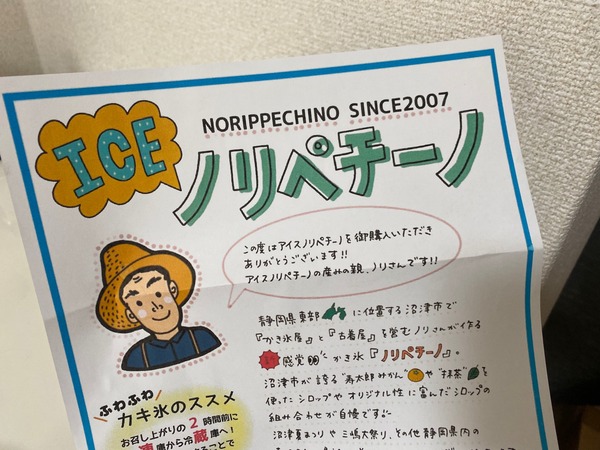 ICE
NORIPPECHINO SINCE2007
ノリペチーノ
この度はアイスノリペチーノを御購入いただき
ありがとうございます!!
アイスノリペチーノの産みの親、ノリさんです!!
静岡県東部 に位置する沼津市で
『かき氷屋』と『古着屋』を営むノリさんが作る
新感覚 かき氷『ノリペチーノ』。
沼津市が誇る"寿太郎みかん" や"抹茶" を
使ったシロップやオリジナル性に富んだシロップの
組み合わせが自慢です
沼津夏まつりや三嶋大祭り、その他静岡県内の
ふわふわ
カキ氷のススメ
お召し上がりの2時間前に
凍庫から冷蔵庫へ!
ことで